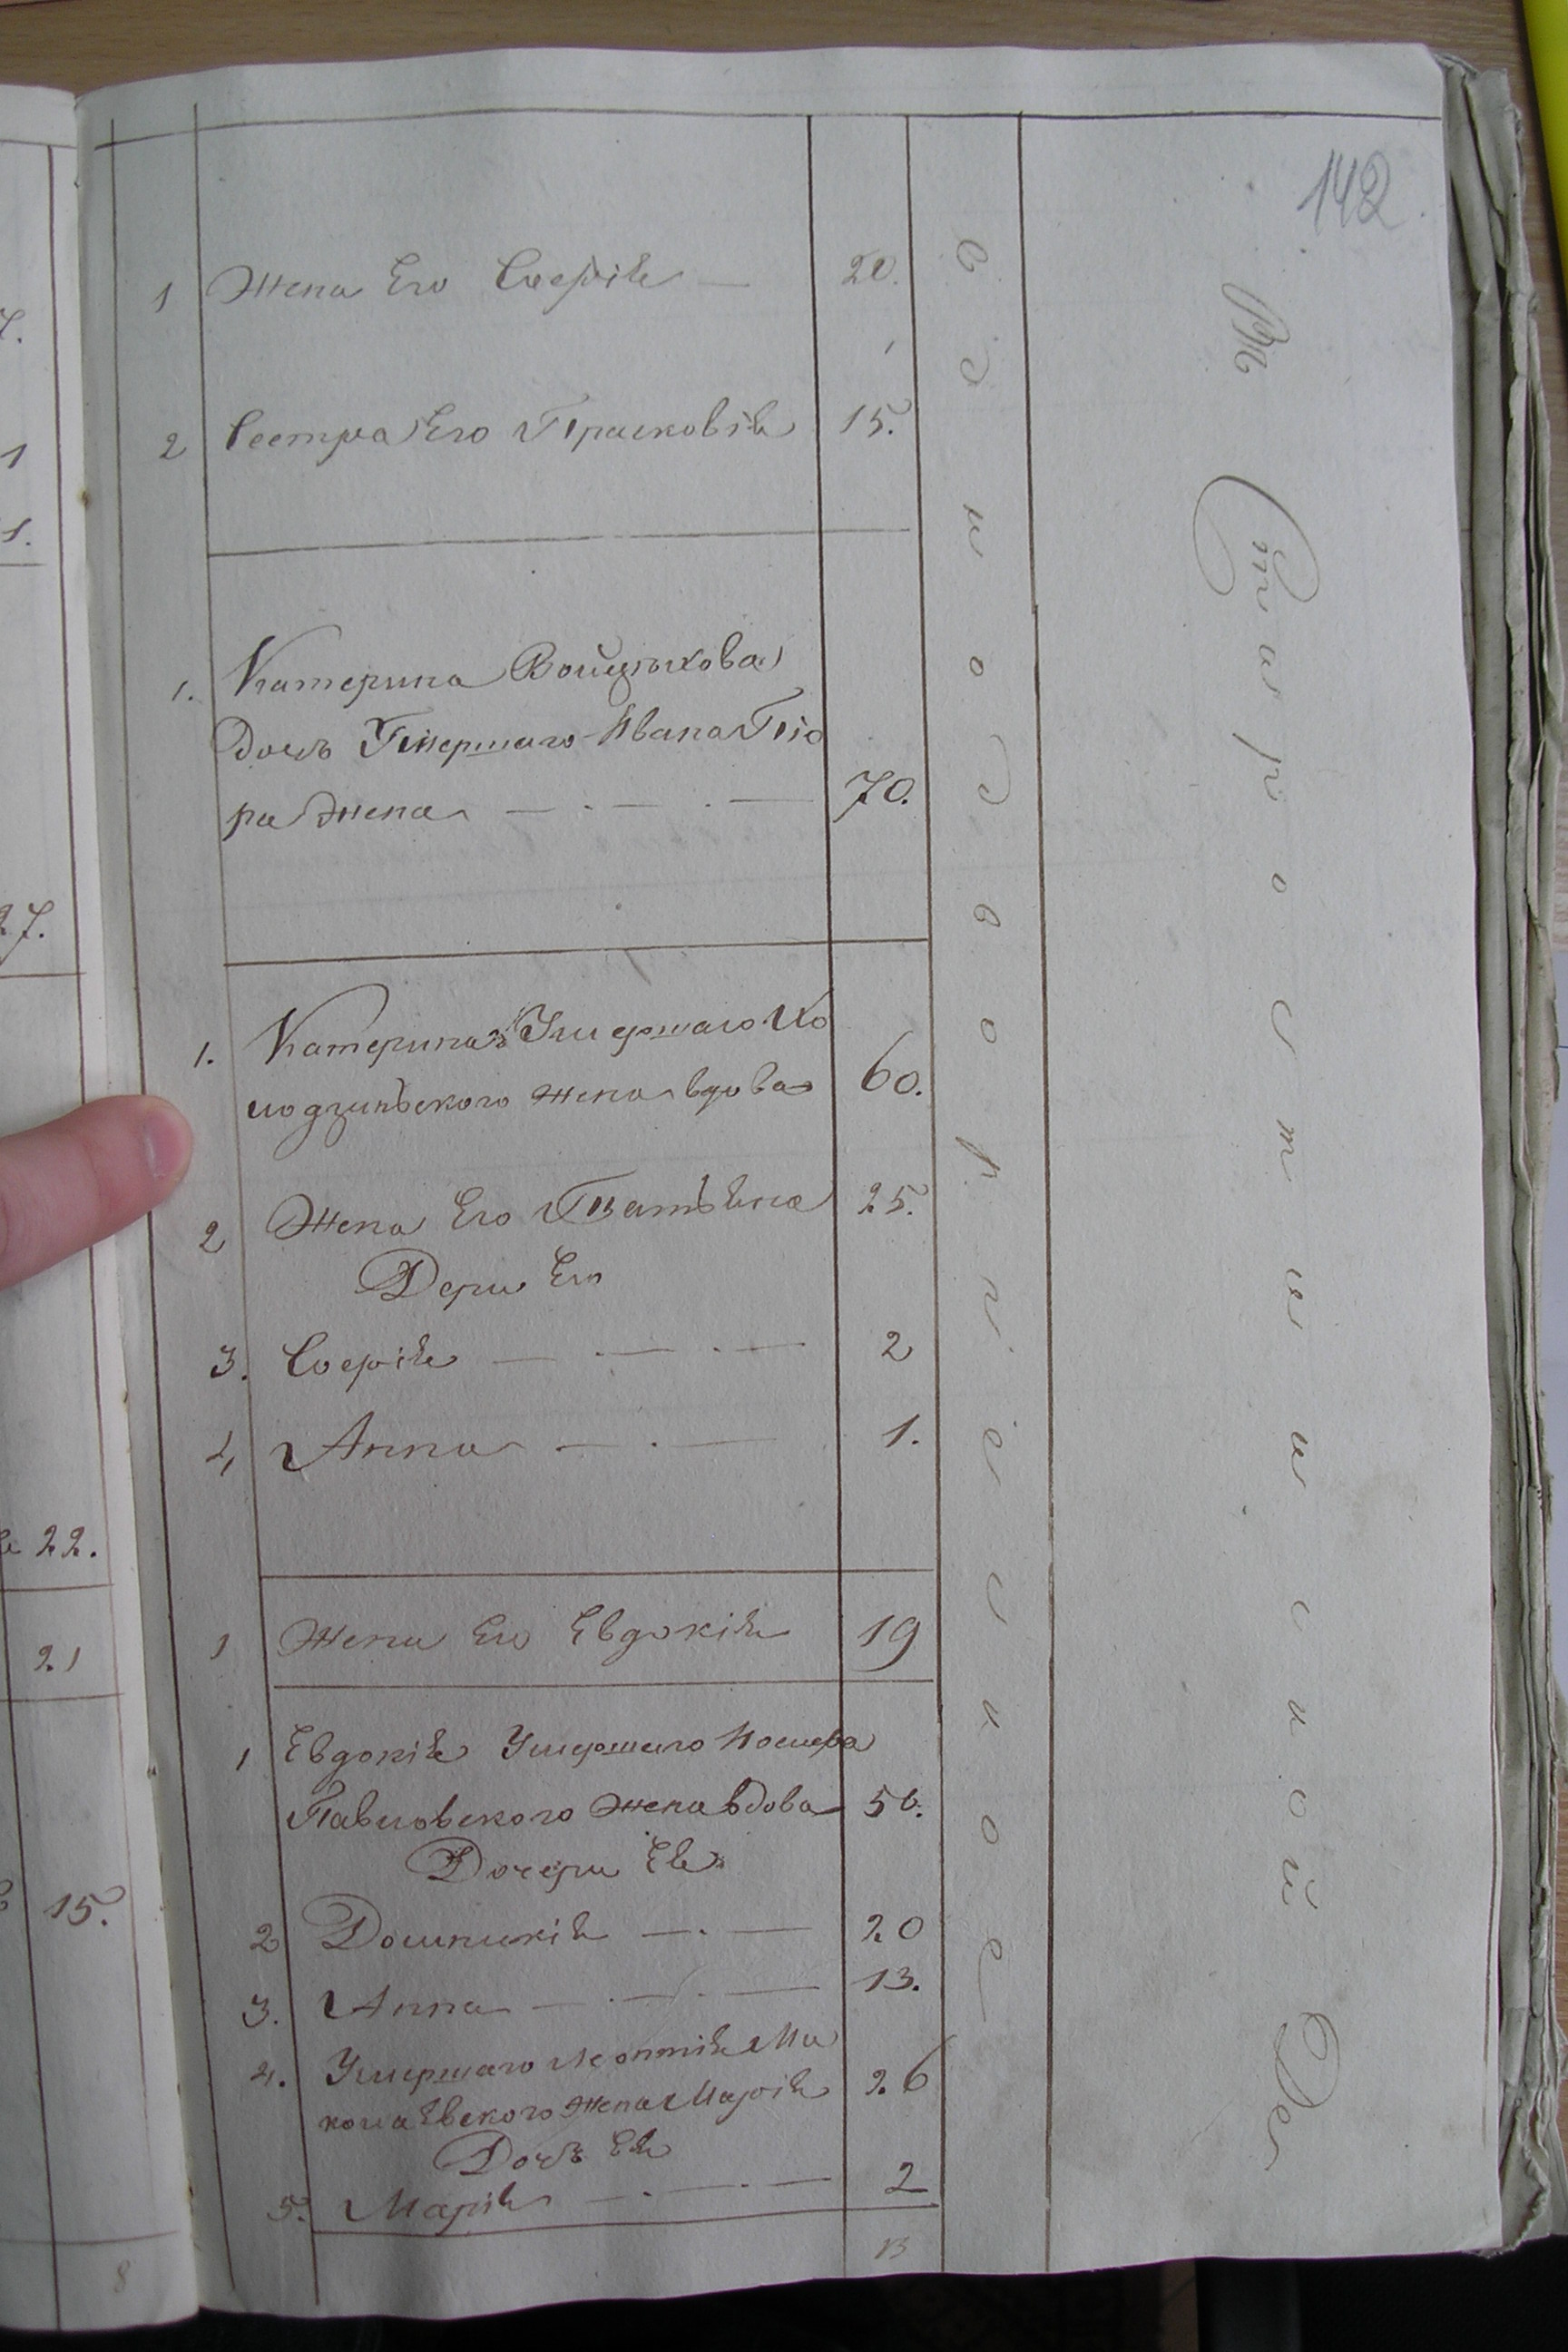 142
1 Жена Его Софія — 20.
2 Сестра Его Прасковія 15.
1. Катерина Войцѣхова
дочь Умершаго Ивана Піо
ра Жена — · — · — 70.
1. Катерина Умершаго Ко
лодзинъского жена вдова 60.
2 Жена Его Татьяна 25.
Дери Его
3. Софія — · — · — 2
4 Анна — · — 1.
1 Жена Его Евдокія 19
1 Евдокія Умершаго Іосифа
Павловского жена вдова 50.
Дочери Ея
2 Доминикія — · — 20
3. Анна — · — · — 13.
4. Умершаго Леонтія Ма
коваевского Жена Марія 26
Дочь Ея
5. Марія — · — · — 2
13
о д н о д в о р ч е с к о е
С т а р о с т и н с к о й Де
7.
1
1.
27.
22.
21
15.
8